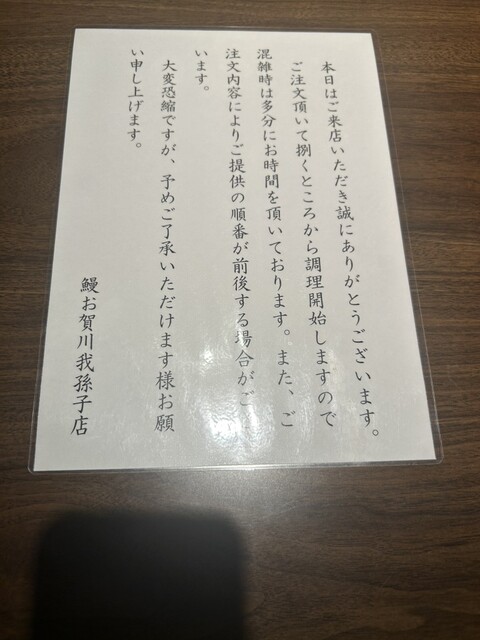 本日はご来店いただき誠にありがとうございます。
ご注文頂いて捌くところから調理開始しますので
混雑時は多分にお時間を頂いております。また、ご
注文内容によりご提供の順番が前後する場合がご
います。
大変恐縮ですが、予めご了承いただけます様お願
い申し上げます。
鰻お賀川我孫子店